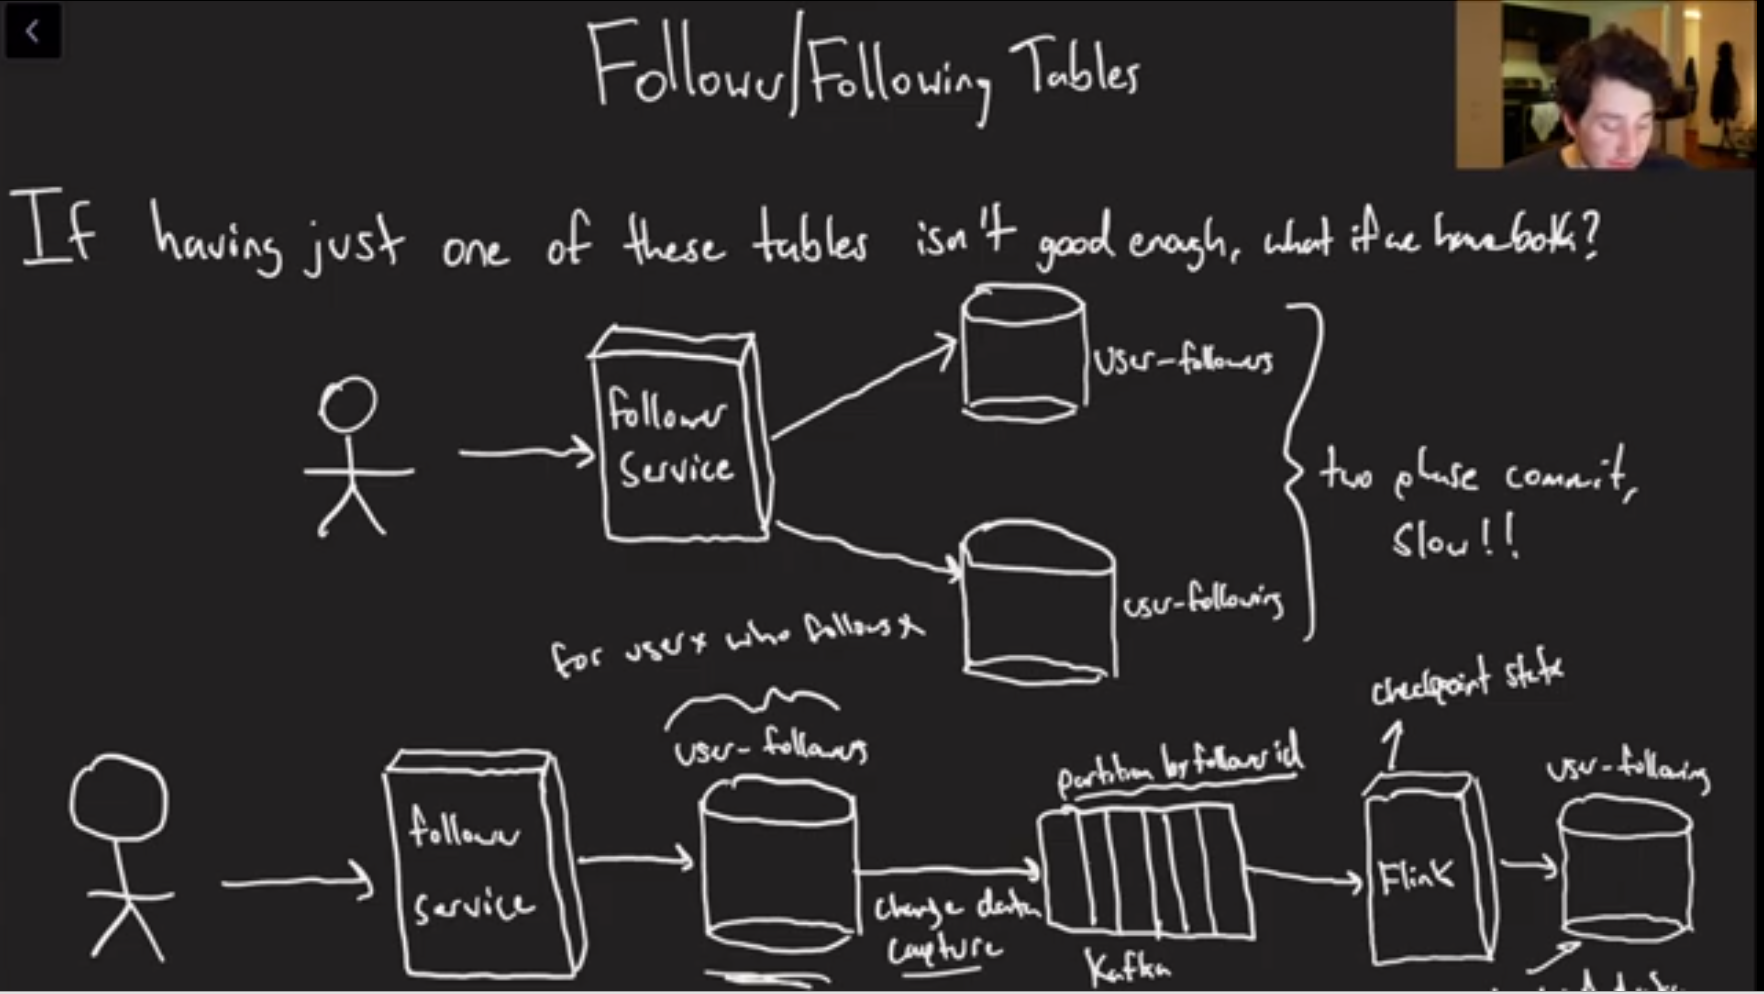 Follower/Following Tables
If having just one of these tables isn't good enough, what if we have both?
follower
service
user-followers
user-following
two phase commit,
slow!!
for user x who follows x
user-followers
follower
service
change data
capture
partition by follower id
Kafka
checkpoint state
Flink
user-following